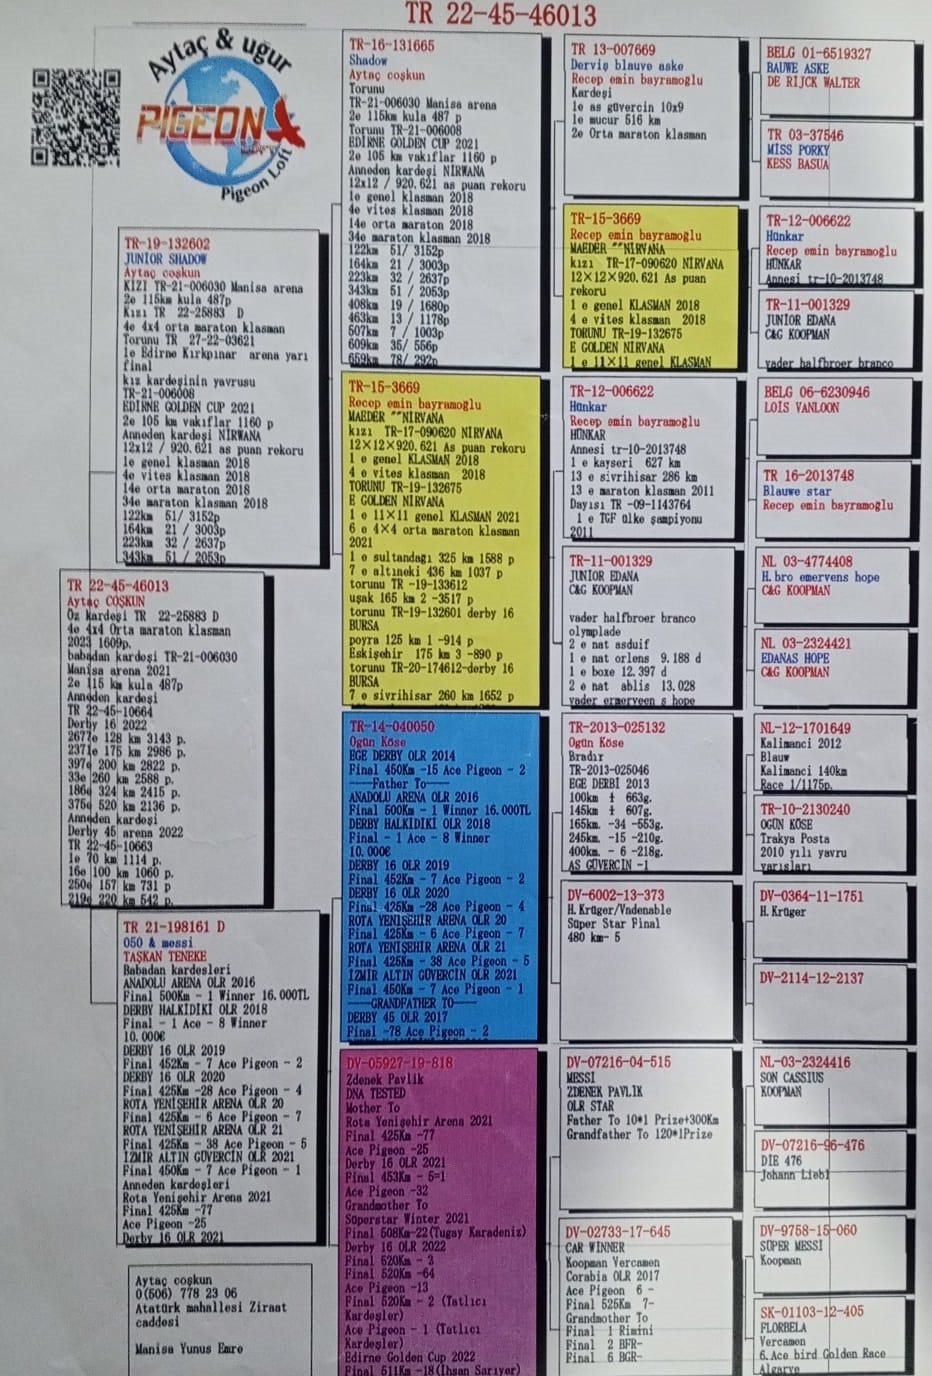 TR 22-45-46013
Aytaç & uğur
PIGEON
Pigeon Loft
TR-19-132602
JUNIOR SHADOW
Aytaç coşkun
KIZI TR-21-006030 Manisa arena
2e 115km kula 487p
Kızı TR 22-25883 D
4e 4x4 orta maraton klasman
Torunu TR 27-22-03621
1e Edirne Kırkpınar arena yarı
final
kız kardeşinin yavrusu
TR-21-006008
EDIRNE GOLDEN CUP 2021
2e 105 km vakıflar 1160 p
Anneden kardeşi NIRWANA
12x12 / 920.621 as puan rekoru
1e genel klasman 2018
4e vites klasman 2018
14e orta maraton 2018
34e maraton klasman 2018
122km 51/ 3152p
164km 21 / 3003p
223km 32 / 2637p
343km 51 / 2053p
TR 22-45-46013
Aytaç COŞKUN
Öz kardeşi TR 22-25883 D
4e 4x4 Orta maraton klasman
2023 1609p.
babadan kardeşi TR-21-006030
Manisa arena 2021
2e 115 km kula 487p
Anneden kardeşi
TR 22-45-10664
Derby 16 2022
2677e 128 km 3143 p.
2371e 175 km 2986 p.
397e 200 km 2822 p.
33e 260 km 2588 p.
186e 324 km 2415 p.
375e 520 km 2136 p.
Anneden kardeşi
Derby 45 arena 2022
TR 22-45-10663
1e 70 km 1114 p.
16e 100 km 1060 p.
250e 157 km 731 p
219e 220 km 542 p.
TR 21-198161 D
050 & messi
TAŞKAN TENEKE
Babadan kardesleri
ANADOLU ARENA OLR 2016
Final 500Km - 1 Winner 16.000TL
DERBY HALKIDIKI OLR 2018
Final - 1 Ace - 8 Winner
10.000€
DERBY 16 OLR 2019
Final 452Km - 7 Ace Pigeon - 2
DERBY 16 OLR 2020
Final 425Km -28 Ace Pigeon - 4
ROTA YENIŞEHIR ARENA OLR 20
Final 425Km - 6 Ace Pigeon - 7
ROTA YENIŞEHIR ARENA OLR 21
Final 425Km - 38 Ace Pigeon - 5
IZMIR ALTIN GÜVERCIN OLR 2021
Final 450Km - 7 Ace Pigeon - 1
Anneden kardeşleri
Rota Yenişehir Arena 2021
Final 425Km -77
Ace Pigeon -25
Derby 16 OLR 2021
Aytaç coşkun
0(506) 778 23 06
Atatürk mahallesi Ziraat
caddesi
Manisa Yunus Emre
TR-16-131665
Shadow
Aytaç coşkun
Torunu
TR-21-006030 Manisa arena
2e 115km kula 487 p
Torunu TR-21-006008
EDIRNE GOLDEN CUP 2021
2e 105 km vakıflar 1160 p
Anneden kardeşi NIRWANA
12x12 / 920.621 as puan rekoru
1e genel klasman 2018
4e vites klasman 2018
14e orta maraton 2018
34e maraton klasman 2018
122km 51/ 3152p
164km 21 / 3003p
223km 32 / 2637p
343km 51 / 2053p
408km 19 / 1680p
463km 13 / 1178p
507km 7 / 1003p
609km 35/ 556p
659km 78/ 292p
TR-15-3669
Recep emin bayramoglu
MAEDER ""NIRVANA
kızı TR-17-090620 NIRVANA
12×12×920.621 As puan rekoru
1 e genel KLASMAN 2018
4 e vites klasman 2018
TORUNU TR-19-132675
E GOLDEN NIRVANA
1 e 11×11 genel KLASMAN 2021
6 e 4×4 orta maraton klasman
2021
1 e sultandagı 325 km 1588 p
7 e altınekı 436 km 1037 p
torunu TR -19-133612
uşak 165 km 2 -3517 p
torunu TR-19-132601 derby 16
BURSA
poyra 125 km 1 -914 p
Eskişehir 175 km 3 -890 p
torunu TR-20-174612-derby 16
BURSA
7 e sivrihisar 260 km 1652 p
TR-14-040050
Ogün Köse
EGE DERBY OLR 2014
Final 450Km -15 Ace Pigeon - 2
----Father To----
ANADOLU ARENA OLR 2016
Final 500Km - 1 Winner 16.000TL
DERBY HALKIDIKI OLR 2018
Final - 1 Ace - 8 Winner
10.000€
DERBY 16 OLR 2019
Final 452Km - 7 Ace Pigeon - 2
DERBY 16 OLR 2020
Final 425Km -28 Ace Pigeon - 4
ROTA YENIŞEHIR ARENA OLR 20
Final 425Km - 6 Ace Pigeon - 7
ROTA YENIŞEHIR ARENA OLR 21
Final 425Km - 38 Ace Pigeon - 5
IZMIR ALTIN GÜVERCIN OLR 2021
Final 450Km - 7 Ace Pigeon - 1
----GRANDFATHER TO----
DERBY 45 OLR 2017
Final -78 Ace Pigeon - 2
DV-05927-19-818
Zdenek Pavlik
DNA TESTED
Mother To
Rota Yenişehir Arena 2021
Final 425Km -77
Ace Pigeon -25
Derby 16 OLR 2021
Final 453Km - 5=1
Ace Pigeon -32
Grandmother To
Süperstar Winter 2021
Final 508Km-22(Tugay Karadeniz)
Derby 16 OLR 2022
Final 520Km - 3
Final 520Km -64
Ace Pigeon -13
Final 520Km - 2 (Tatlıcı
Kardeşler)
Ace Pigeon - 1 (Tatlıcı
Kardeşler)
Edirne Golden Cup 2022
Final 511Km -18(İhsan Sarıyer)
TR 13-007669
Derviş blauve aske
Recep emin bayramoglu
Kardeşi
1e as güvercin 10x9
1e mucur 516 km
2e Orta maraton klasman
TR-15-3669
Recep emin bayramoğlu
MAEDER ""NIRVANA
kızı TR-17-090620 NIRVANA
12×12×920.621 As puan
rekoru
1 e genel KLASMAN 2018
4 e vites klasman 2018
TORUNU TR-19-132675
E GOLDEN NIRVANA
1 e 11×11 genel KLASMAN
TR-12-006622
Hünkar
Recep emin bayramoglu
HÜNKAR
Annesi tr-10-2013748
1 e kayseri 627 km
13 e sivrihisar 286 km
13 e maraton klasman 2011
Dayısı TR -09-1143764
1 e TGF ülke şampiyonu
2011
TR-11-001329
JUNIOR EDANA
C&G KOOPMAN
vader halfbroer branco
olymplade
2 e nat asduif
1 e nat orlens 9.188 d
1 e boxe 12.397 d
2 e nat ablis 13.028
vader ermerveen s hope
TR-2013-025132
Ogün Köse
Bradır
TR-2013-025046
EGE DERBI 2013
100km ‡ 663g.
145km ‡ 607g.
165km. -34 -553g.
245km. -15 -210g.
400km. - 6 -218g.
AS GÜVERCIN -1
DV-6002-13-373
H. Krüger/Vndenable
Süper Star Final
480 km- 5
DV-07216-04-515
MESSI
ZDENEK PAVLIK
OLR STAR
Father To 10*1 Prize+300Km
Grandfather To 120*1Prize
DV-02733-17-645
CAR WINNER
Koopman Vercamen
Corabia OLR 2017
Ace Pigeon 6 -
Final 525Km 7-
Grandmother To
Final 1 Rimini
Final 2 BFR-
Final 6 BGR-
BELG 01-6519327
BAUWE ASKE
DE RIJCK WALTER
TR 03-37546
MISS PORKY
KESS BASUA
TR-12-006622
Hünkar
Recep emin bayramoglu
HÜNKAR
Annesi tr-10-2013748
TR-11-001329
JUNIOR EDANA
C&G KOOPMAN
vader halfbroer branco
BELG 06-6230946
LOIS VANLOON
TR 16-2013748
Blauwe star
Recep emin bayramoğlu
NL 03-4774408
H. bro emervens hope
C&G KOOPMAN
NL 03-2324421
EDANAS HOPE
C&G KOOPMAN
NL-12-1701649
Kalimanci 2012
Blauw
Kalimanci 140km
Race 1/1175p.
TR-10-2130240
OGÜN KÖSE
Trakya Posta
2010 yılı yavru
yarışları
DV-0364-11-1751
H. Krüger
DV-2114-12-2137
NL-03-2324416
SON CASSIUS
KOOPMAN
DV-07216-96-476
DIE 476
Johann Liebl
DV-9758-15-060
SÜPER MESSI
Koopman
SK-01103-12-405
FLORBELA
Vercamen
6. Ace bird Golden Race
Algarve